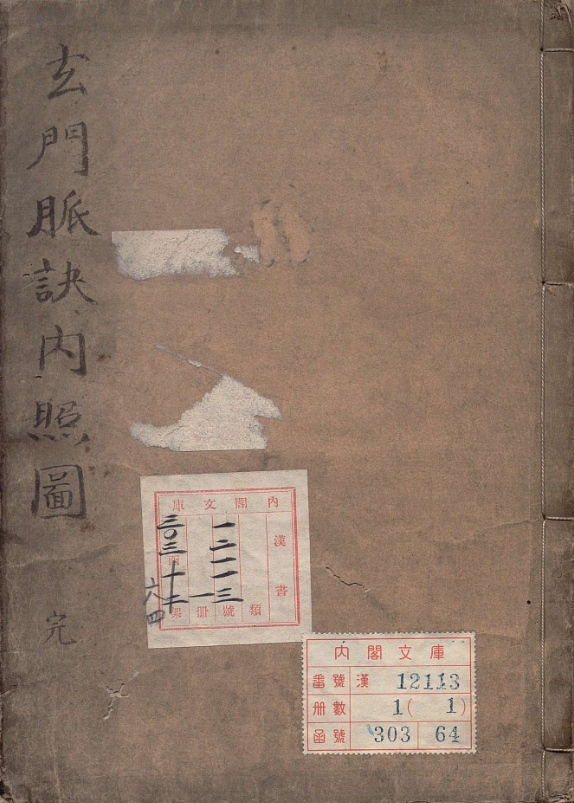 玄門脈訣内照圖
完
内閣文庫
漢書
類
號
册
架
一二一一三
一
三〇三
六四
内閣文庫
番號 漢 12113
册數 1( 1)
函號 303 64